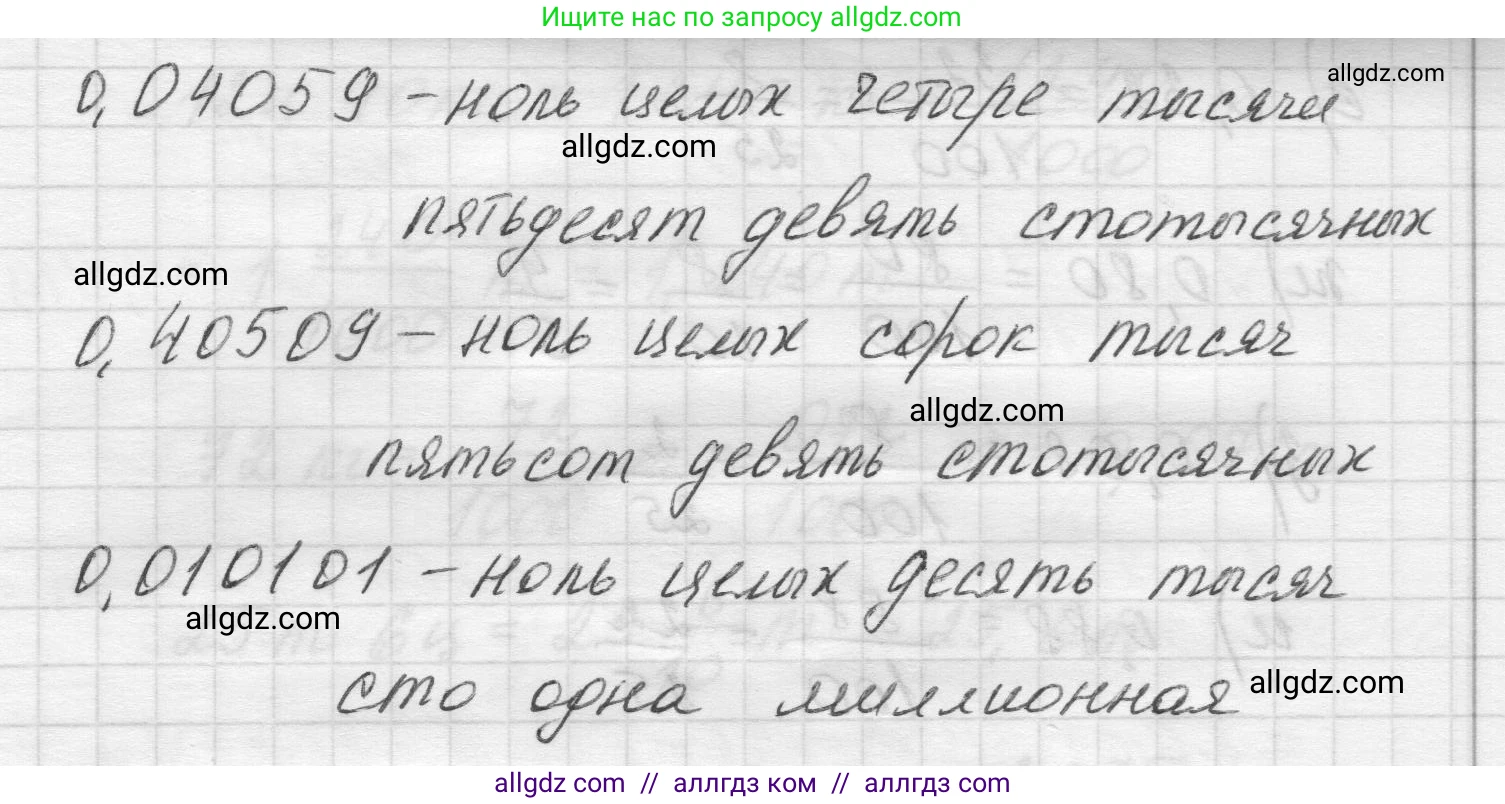 Ищите нас по запросу allgdz.com
0,04059 – ноль целых четыре тысячи
allgdz.com
allgdz.com
пятьдесят девять стотысячных
allgdz.com
0,40509 – ноль целых сорок тысяч
allgdz.com
пятьсот девять стотысячных
0,010101 – ноль целых десять тысяч
allgdz.com
сто одна миллионная
allgdz.com
allgdz.com // аллгдз ком // аллгдз com